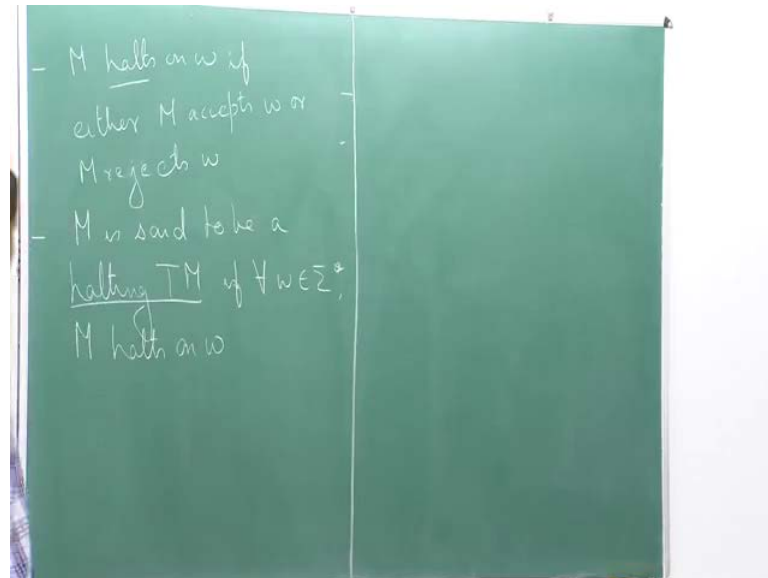 - M halts on w if
either M accepts w or
M rejects w
- M is said to be a
halting TM if ∀ w ∈ Σ*,
M halts on w